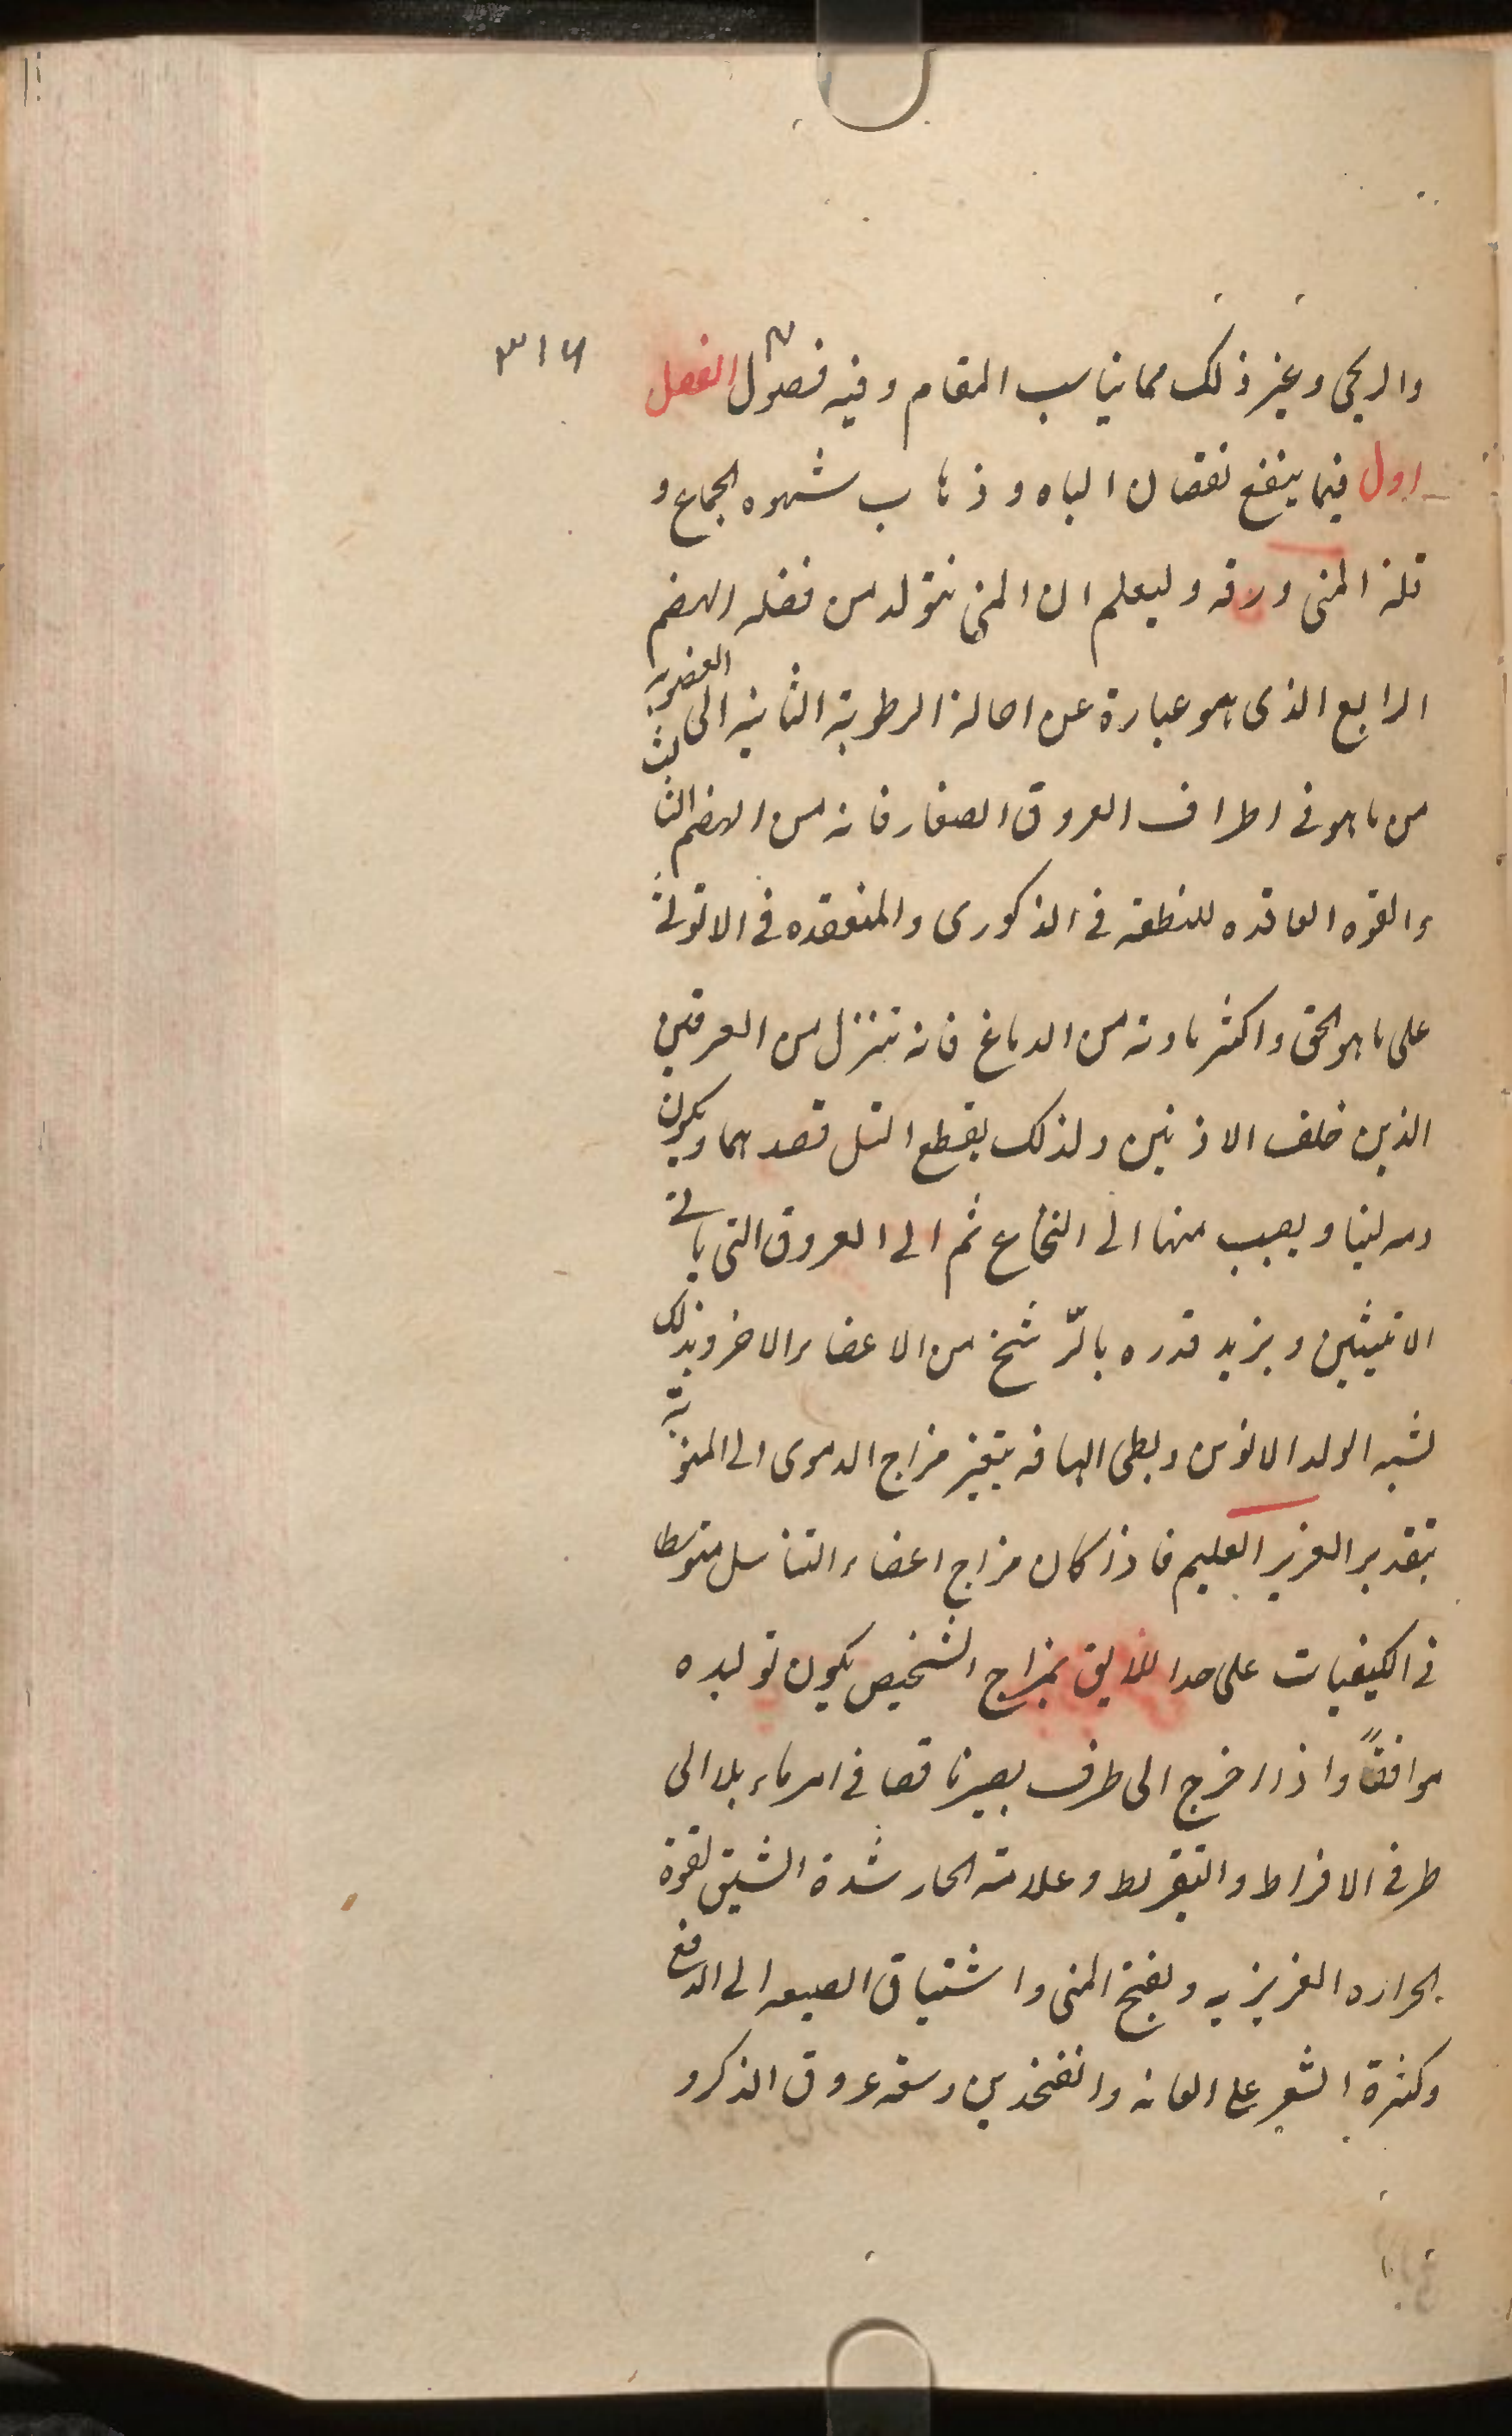 ٣١٦
والريحى وغير ذلك مما يناسب المقام وفيه فصول الفصل
اول فيما ينفع نقصان الباه وذهاب شهوه الجماع و
قلة المنى ورقه وليعلم ان المنى يتولد من فضله الهضم
الرابع الذى هو عبارة عن احالة الرطوبة الثانيه الى العضويه
من ماهو فى اطراف العروق الصغار فانه من الهضم الثالث
والقوه العاقده للنطفه فى الذكورى والمنعقده فى الانوثة
على ماهو الحق واكثر مادته من الدماغ فانه تنزل من العرقين
الذين خلف الاذنين ولذلك يقطع النسل فصدهما ويكون
دمه لبنيا ويصب منها الى النخاع ثم الى العروق التى ياتى
الانثيين ويزيد قدره بالترشخ من الاعضاء الاخر وبذلك
لشبه الولد الابوين وبطى المنويه يتغيز مزاج الدموى الى
بتقدير العزيز العليم فاذا كان مزاج اعضاء التناسل متوسطا
فى الكيفيات على حد اللايق بمزاج الشخيص يكون توليده
موافقاً واذا اخرج الى طرف يصير ناقصا فى امر ماء بلا الى
طرفى الافراط والتفريط وعلامة الحار شدة الشبق لقوة
الحراره الغريزيه ونضج المنى واشتياق الى الدفع
وكثرة الشعر على العانه والفخذين وسعة عروق الذكر و